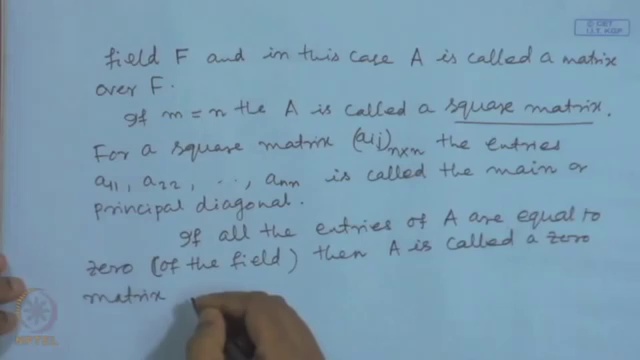 © CET
I.I.T. KGP
field F and in this case A is called a matrix
over F.
If m = n the A is called a square matrix.
For a square matrix (aij)n×n the entries
a11, a22, .., ann is called the main or
principal diagonal.
If all the entries of A are equal to
zero (of the field) then A is called a zero
matrix
NPTEL